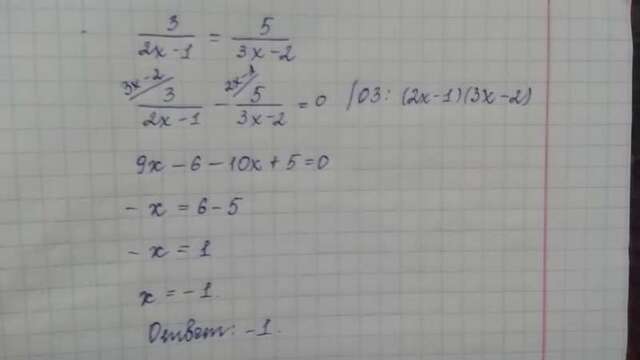 3/(2x-1) = 5/(3x-2)
3x-2/ 3/(2x-1) - 2x-1/ 5/(3x-2) = 0 | ОЗ: (2x-1)(3x-2)
9x-6-10x+5=0
- x = 6-5
- x = 1
x = -1.
Ответ: -1.